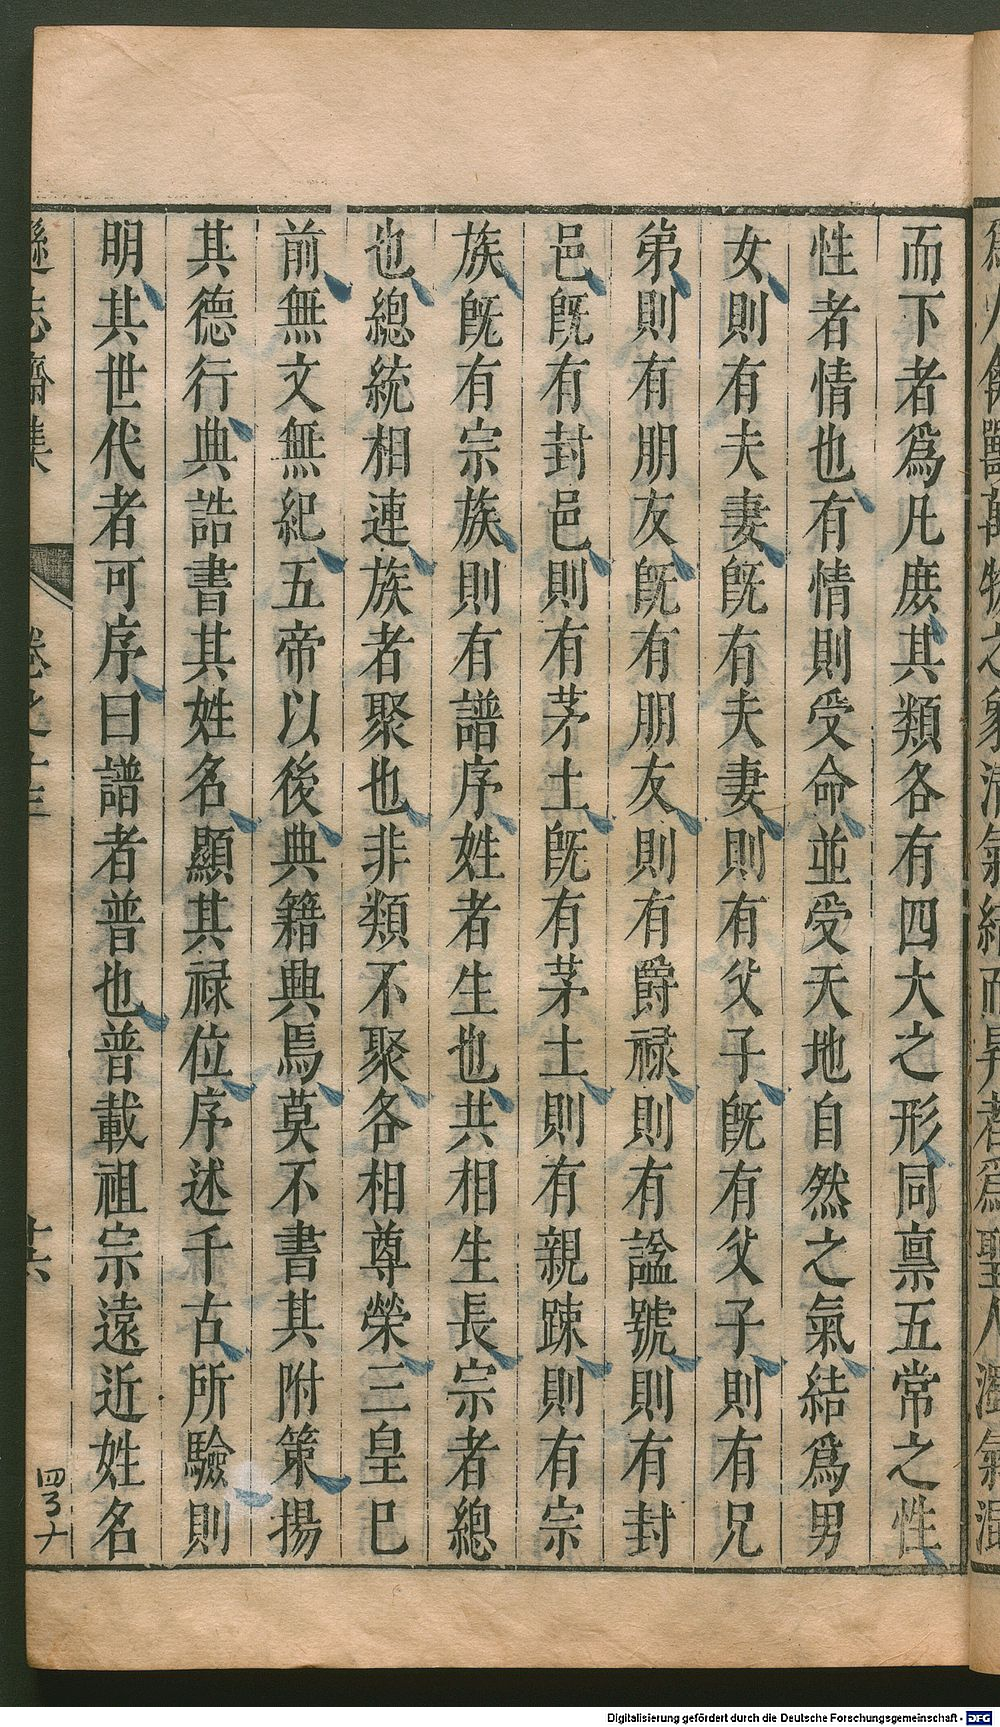 而下者爲凡庶其類各有四大之形同禀五常之性
性者情也有情則受命並受天地自然之氣結爲男
女則有夫妻旣有夫妻則有父子旣有父子則有兄
弟則有朋友旣有朋友則有爵祿則有諡號則有封
邑旣有封邑則有茅土旣有茅土則有親踈則有宗
族旣有宗族則有譜序姓者生也共相生長宗者總
也總統相連族者聚也非類不聚各相尊榮三皇巳
前無文無紀五帝以後典籍興焉莫不書其附策揚
其德行典誥書其姓名顯其祿位序述千古所驗則
明其世代者可序曰譜者普也普載祖宗遠近姓名
遜志齋集 卷之十三 十六
Digitalisierung gefördert durch die Deutsche Forschungsgemeinschaft - DFG